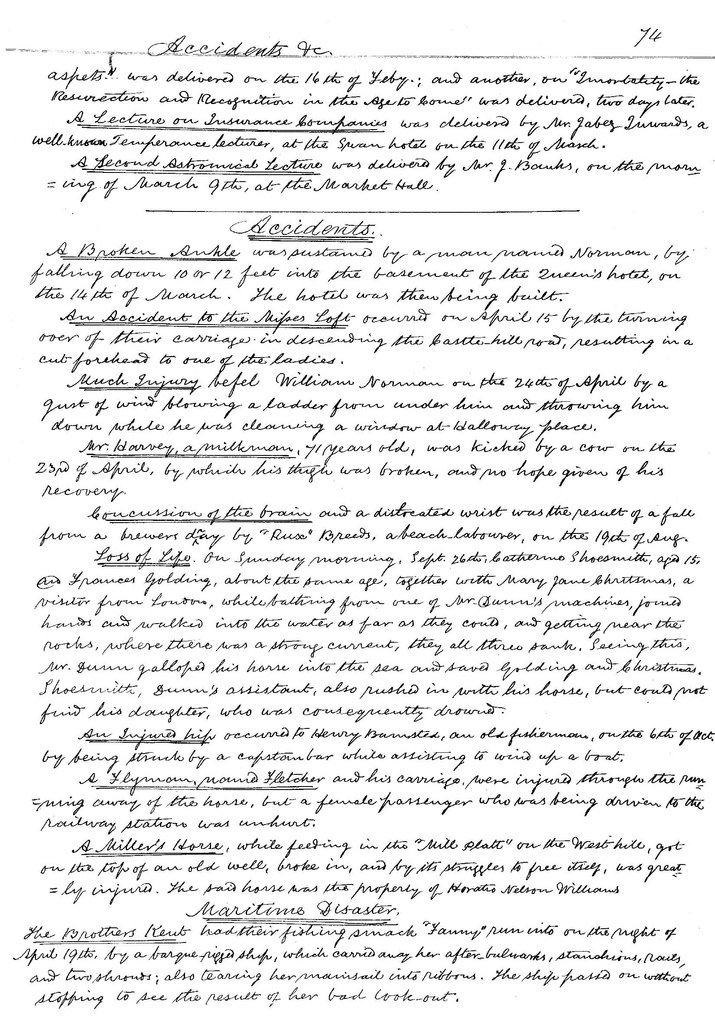 Accidents &c. 74
aspets" was delivered on the 16th of Feby.; and another, on "Imortatety – the
Resurection and Recognition in the Age to Come" was delivered, two days later.
A Lecture on Insurance Companies was delivered by Mr. Jabez Inwards, a
well-known Temperance lecturer, at the Swan hotel on the 11th of March.
A Second Astromical Lecture was delivered by Mr. J. Banks, on the morn
=ing of March 9th, at the Market Hall.
Accidents.
A Broken Ankle was sustained by a man named Norman, by
falling down 10 or 12 feet into the basement of the Queen's hotel, on
the 14th of March. The hotel was then being built.
An Accident to the Misses Loft occurred on April 15 by the turning
over of their carriage in descending the Castle-hill road, resulting in a
cut forehead to one of the ladies.
Much Injury befel William Norman on the 24th of April by a
gust of wind blowing a ladder from under him and throwing him
down while he was cleaning a window at Halloway place.
Mr. Harvey, a milkman, 71 years old, was kicked by a cow on the
23rd of April, by which his thigh was broken, and no hope given of his
recovery.
Concussion of the brain and a dislocated wrist was the result of a fall
from a brewers dray by "Rux" Breeds, a beach-labourer, on the 19th of Aug.
Loss of Life. On Sunday morning, Sept. 26th, Catherine Shoesmith, aged 15,
and Frances Golding, about the same age, together with Mary Jane Christmas, a
visitor from London, while bathing from one of Mr. Dunn's machines, joined
hands and walked into the water as far as they could, and getting near the
rocks, where there was a strong current, they all three sank. Seeing this,
Mr. Dunn galloped his horse into the sea and saved Golding and Christmas.
Shoesmith, Dunn's assistant, also rushed in with his horse, but could not
find his daughter, who was consequently drowned.
An Injured hip occurred to Henry Barnsted, an old fisherman, on the 6th of Oct.
by being struck by a capstan bar while assisting to wind up a boat.
A Flyman, named Fletcher and his carriage, were injured through the run
=ning away of the horse, but a female passenger who was being driven to the
railway station was unhurt.
A Miller's Horse, while feeding in the "Mill Platt" on the West hill, got
on the top of an old well, broke in, and by its struggles to free itself, was great
=ly injured. The said horse was the property of Horatio Nelson Williams
Maritime Disaster.
The Brothers Kent had their fishing smack "Fanny" run into on the night of
April 19th, by a barque-rigged ship, which carried away her after-bulwarks, stanchions, rails,
and two shrouds; also tearing her mainsail into ribbons. The ship passed on without
stopping to see the result of her bad look-out.